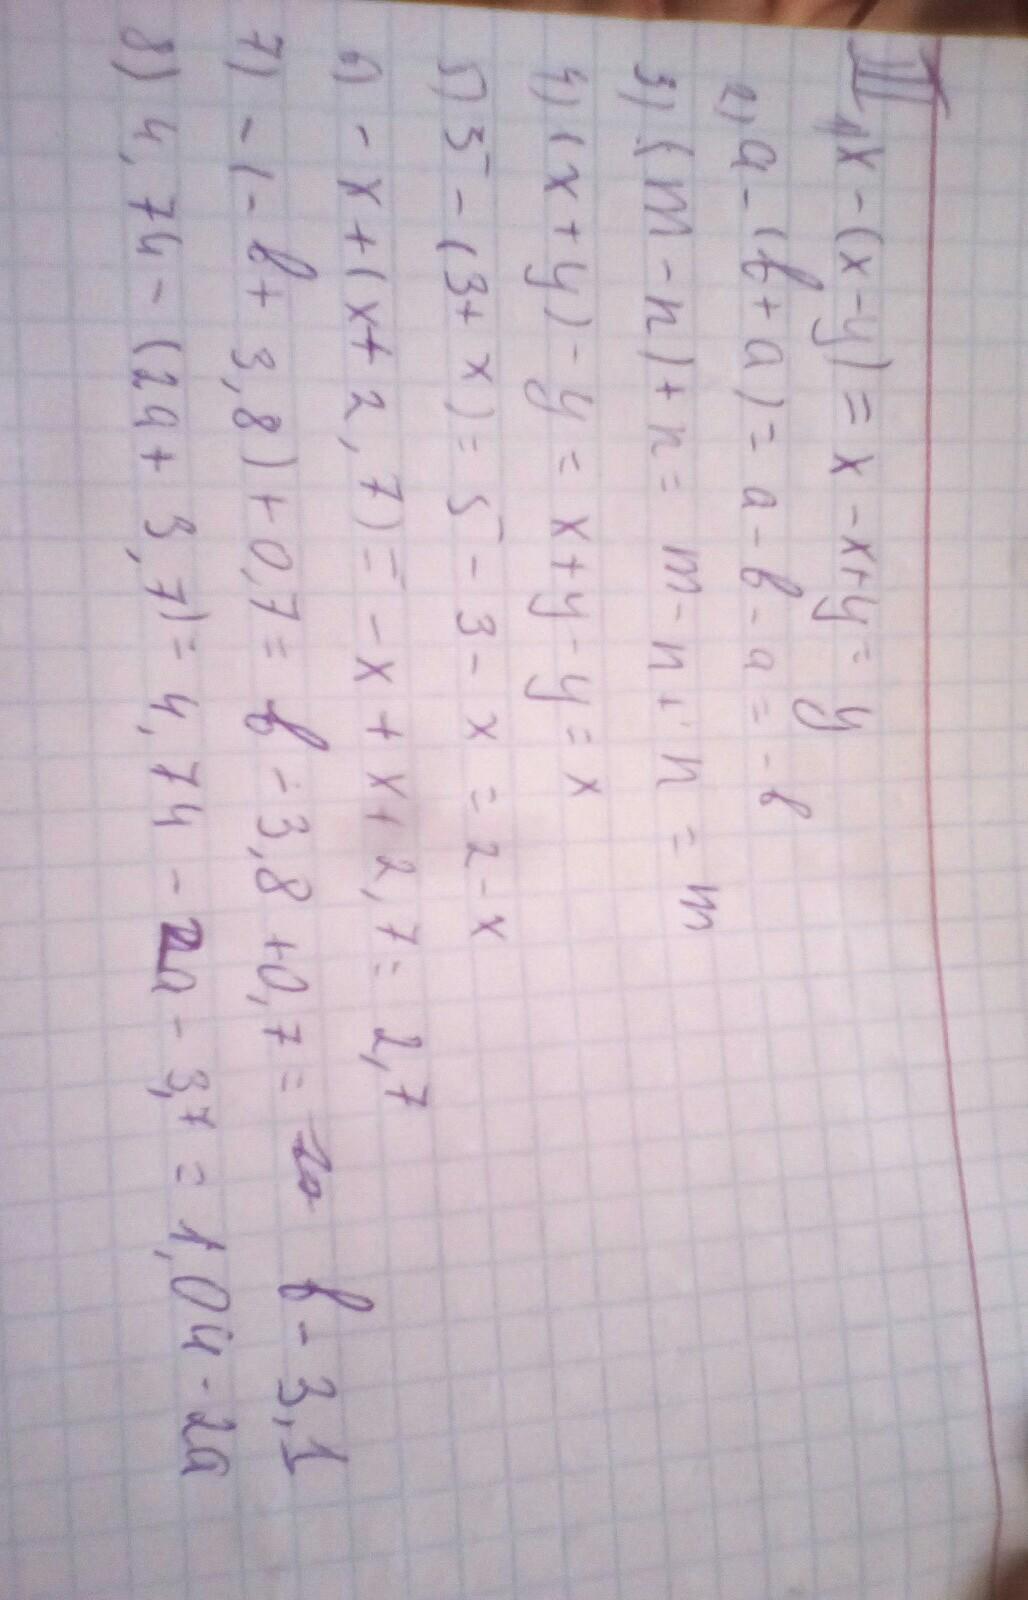 III 1) x - (x - y) = x - x + y = y
2) a - (b + a) = a - b - a = - b
3) (m - n) + n = m - n + n = m
4) (x + y) - y = x + y - y = x
5) 5 - (3 + x) = 5 - 3 - x = 2 - x
6) - x + (x + 2,7) = - x + x + 2,7 = 2,7
7) - (- b + 3,8) + 0,7 = b - 3,8 + 0,7 = b - 3,1
8) 4,74 - (2a + 3,7) = 4,74 - 2a - 3,7 = 1,04 - 2a